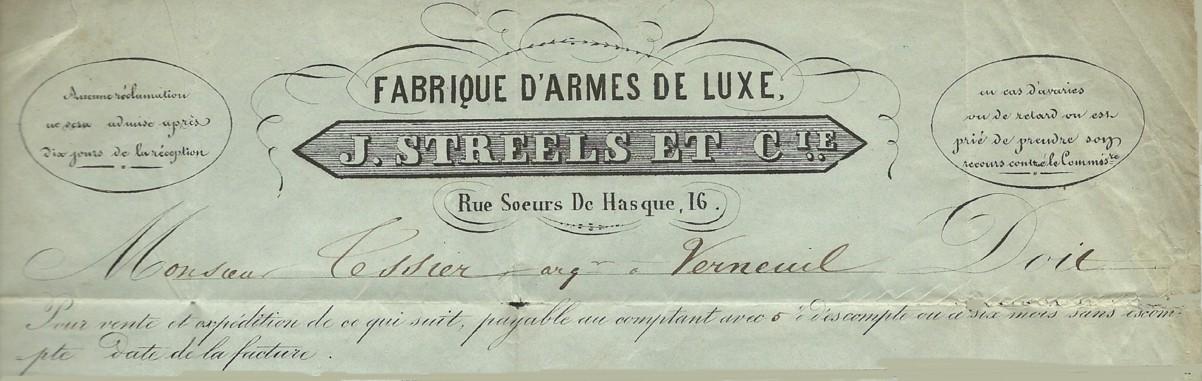 FABRIQUE D'ARMES DE LUXE,
J. STREELS ET CIE
Rue Soeurs De Hasque, 16.
Aucune réclamation
ne sera admise après
dix jours de la réception
en cas d'avaries
ou de retard on est
prié de prendre son
recours contre le Commisre
Monsieur Tessier argr a Verneuil Doit
Pour vente et expédition de ce qui suit, payable au comptant avec 5 % d'escompte ou à six mois sans escom-
pte date de la facture.